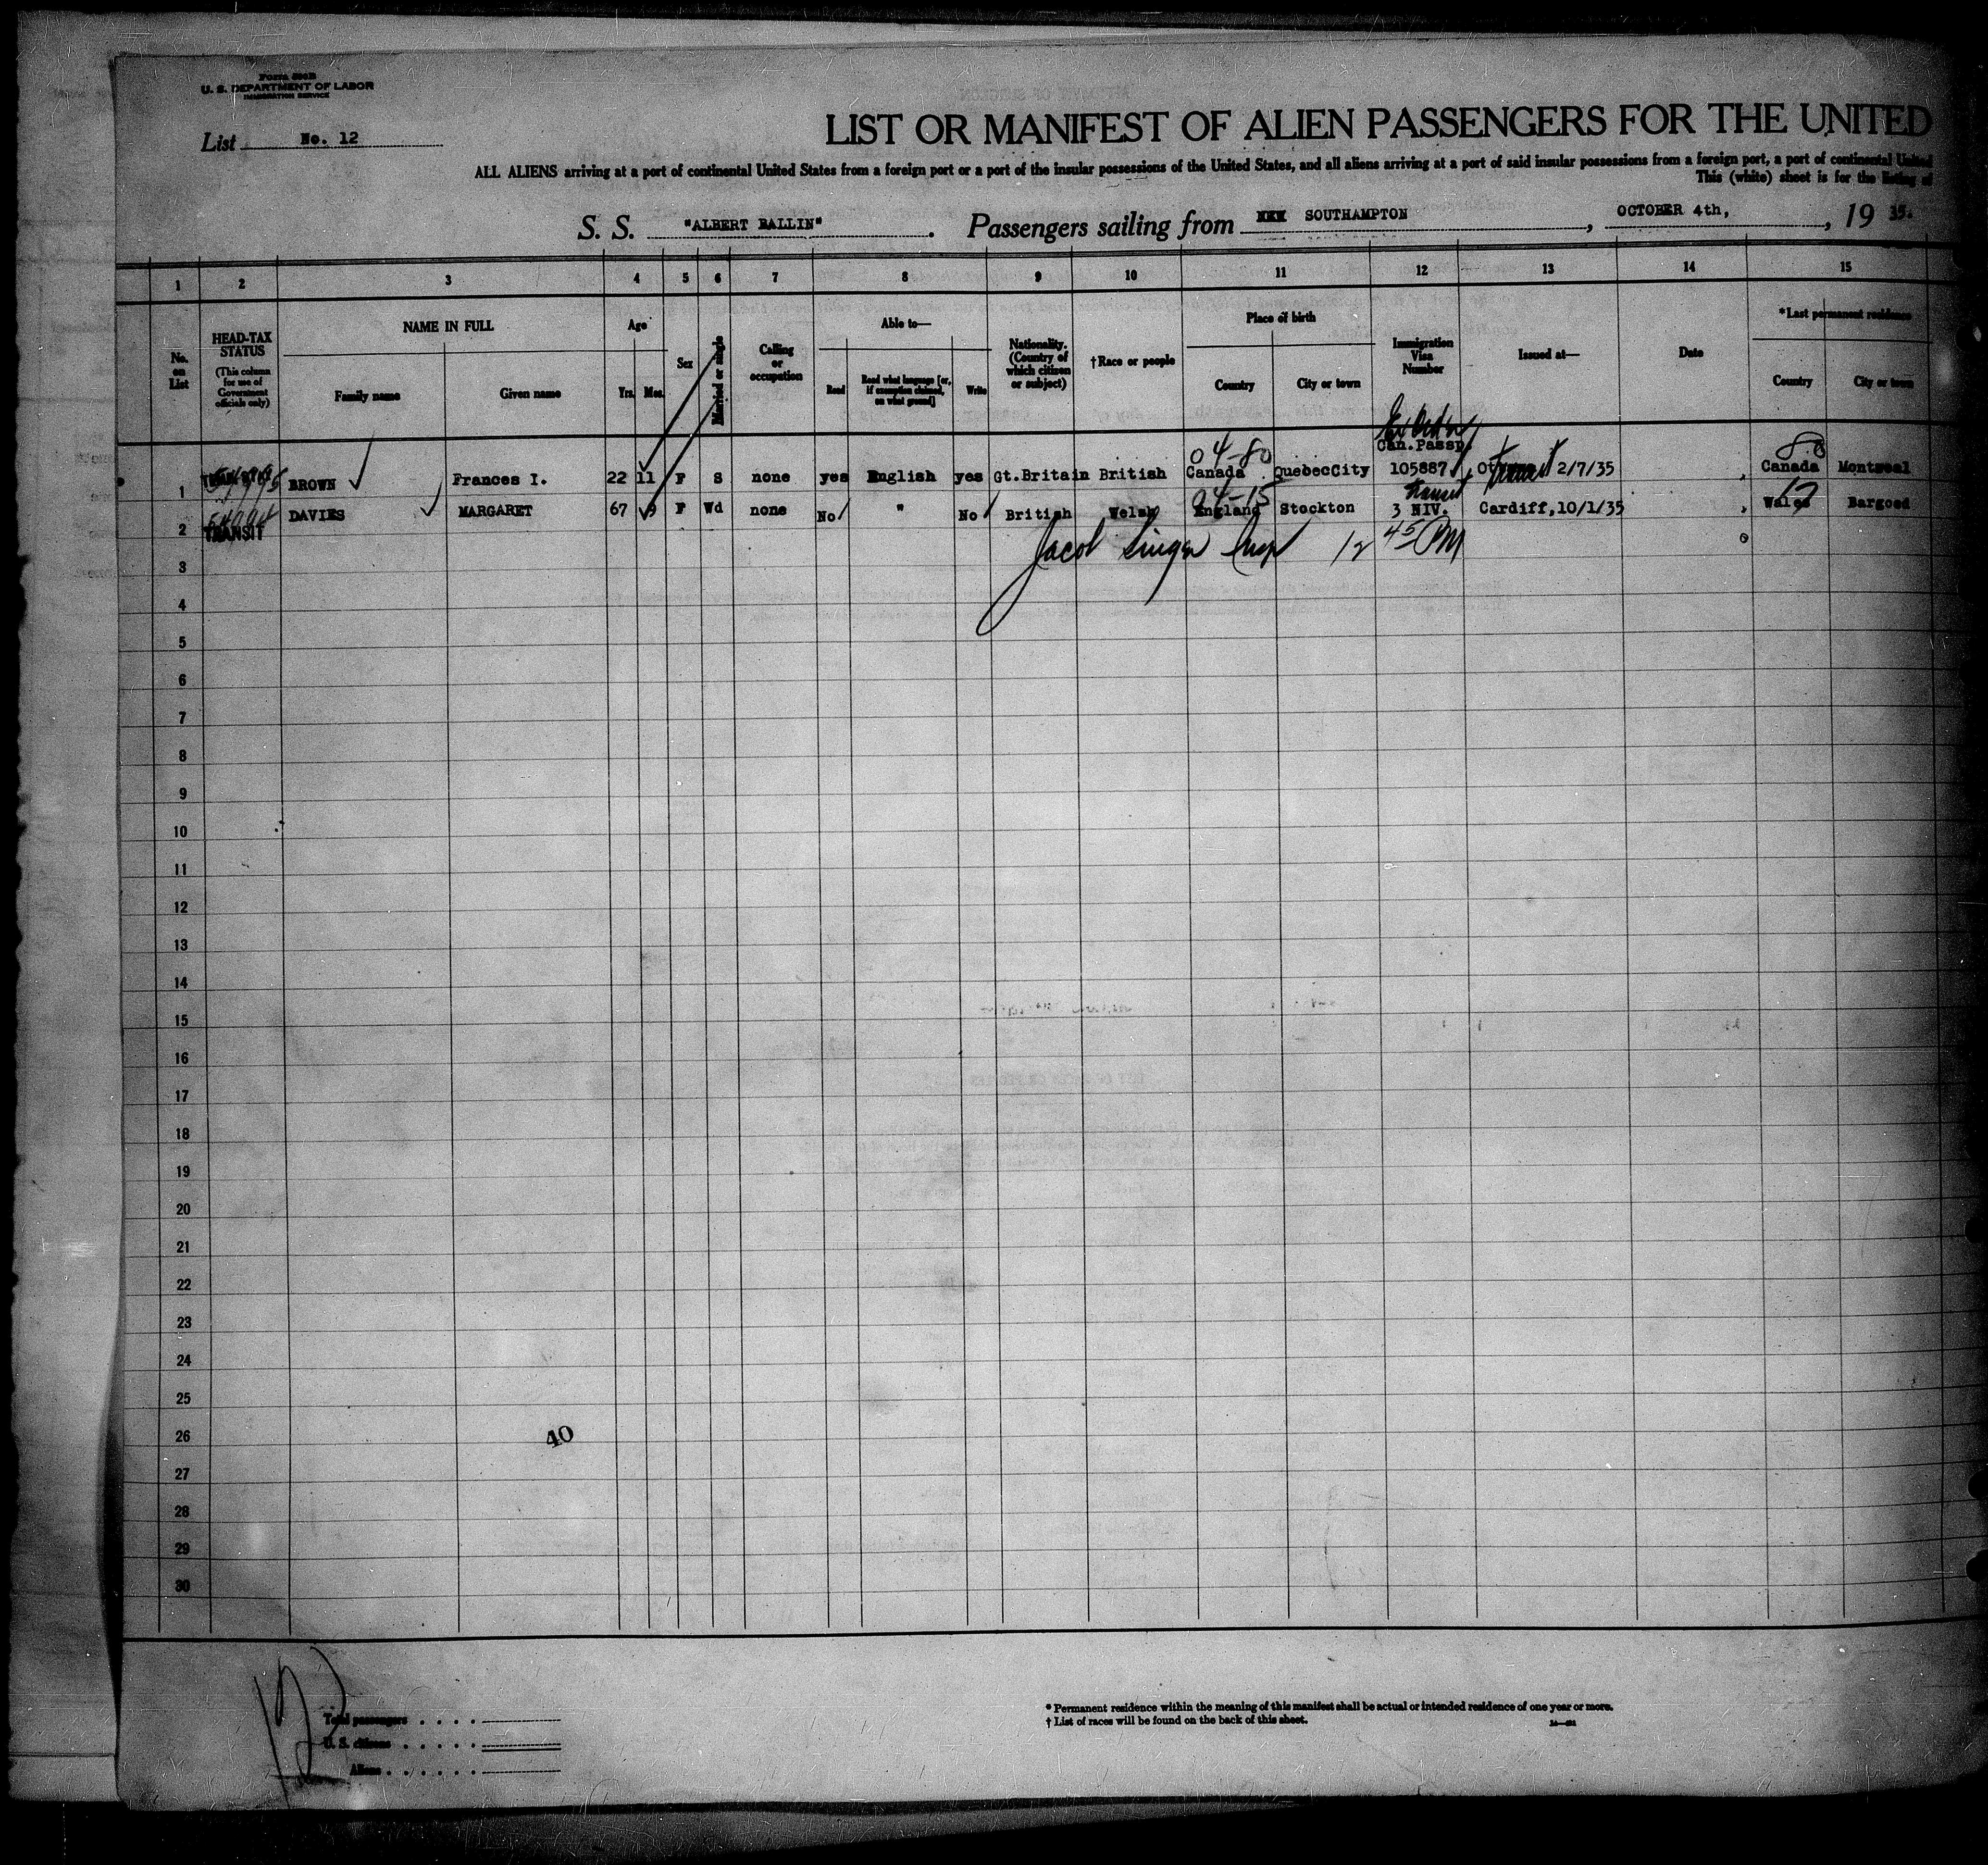 Form 500B
U. S. DEPARTMENT OF LABOR
IMMIGRATION SERVICE
List No. 12
LIST OR MANIFEST OF ALIEN PASSENGERS FOR THE UNITED
ALL ALIENS arriving at a port of continental United States from a foreign port or a port of the insular possessions of the United States, and all aliens arriving at a port of said insular possessions from a foreign port, a port of continental United
This (white) sheet is for the listing of
S. S. "ALBERT BALLIN". Passengers sailing from SOUTHAMPTON, OCTOBER 4th, , 19 35.
1 2 3 4 5 6 7 8 9 10 11 12 13 14 15
No. on List
HEAD-TAX STATUS (This column for use of Government officials only)
NAME IN FULL
Family name Given name
Age
Yrs. Mos.
Sex
Married or single
Calling or occupation
Able to—
Read Read what language [or, if exemption claimed, on what ground] Write
Nationality. (Country of which citizen or subject)
†Race or people
Place of birth
Country City or town
Immigration Visa Number
Issued at—
Date
*Last permanent residence
Country City or town
Can.Passp.
04-80
1 BROWN Frances I. 22 11 F S none yes English yes Gt.Britain British Canada QuebecCity 105887 2/7/35 Canada Montreal
Transit
04-15
2 TRANSIT DAVIES MARGARET 67 9 F Wd none No " No British Welsh England Stockton 3 NIV. Cardiff,10/1/35 Wales Bargoed
Jacob Singer Insp 12 45 PM
3
4
5
6
7
8
9
10
11
12
13
14
15
16
17
18
19
20
21
22
23
24
25
26
40
27
28
29
30
Total passengers
U. S. citizens
Aliens
* Permanent residence within the meaning of this manifest shall be actual or intended residence of one year or more.
† List of races will be found on the back of this sheet.